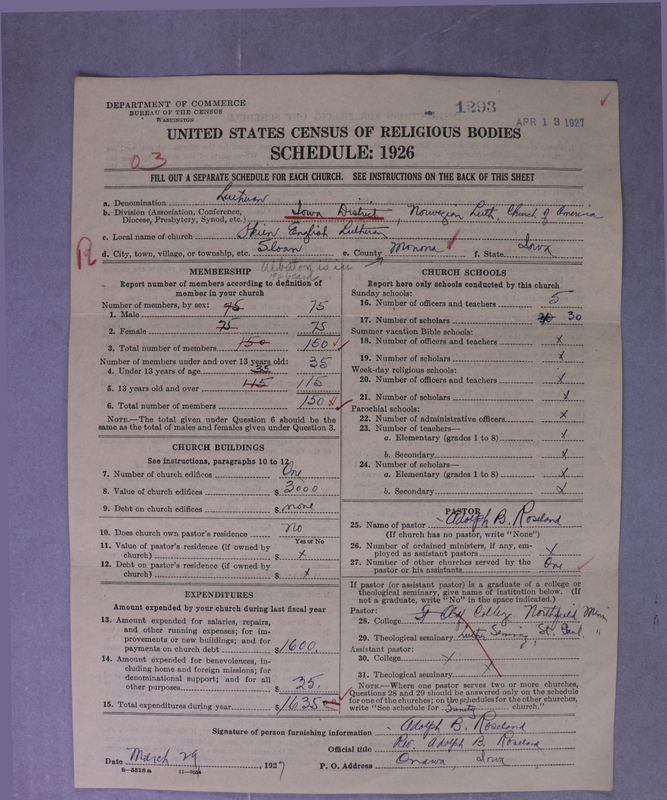 DEPARTMENT OF COMMERCE
BUREAU OF THE CENSUS
WASHINGTON
1293
APR 13 1927
UNITED STATES CENSUS OF RELIGIOUS BODIES
SCHEDULE: 1926
03
FILL OUT A SEPARATE SCHEDULE FOR EACH CHURCH. SEE INSTRUCTIONS ON THE BACK OF THIS SHEET
a. Denomination Lutheran
b. Division (Association, Conference, Diocese, Presbytery, Synod, etc.) Iowa District, Norwegian Luth. Church of America
c. Local name of church Skien English Lutheran
R
d. City, town, village, or township, etc. Sloan e. County Monona f. State Iowa
MEMBERSHIP
Report number of members according to definition of
member in your church
Number of members, by sex:
1. Male 45 75
2. Female 75 75
3. Total number of members 150 150
Number of members under and over 13 years old:
4. Under 13 years of age 35 35
5. 13 years old and over 115 115
6. Total number of members 150
NOTE.—The total given under Question 6 should be the
same as the total of males and females given under Question 3.
CHURCH BUILDINGS
See instructions, paragraphs 10 to 12
7. Number of church edifices One
8. Value of church edifices $ 3000
9. Debt on church edifices $ none
10. Does church own pastor's residence? No
Yes or No
11. Value of pastor's residence (if owned by
church) $ x
12. Debt on pastor's residence (if owned by
church) $ x
EXPENDITURES
Amount expended by your church during last fiscal year
13. Amount expended for salaries, repairs,
and other running expenses; for im-
provements or new buildings; and for
payments on church debt $ 1600.
14. Amount expended for benevolences, in-
cluding home and foreign missions; for
denominational support; and for all
other purposes $ 35.
15. Total expenditures during year $ 1635
CHURCH SCHOOLS
Report here only schools conducted by this church
Sunday schools:
16. Number of officers and teachers 5
17. Number of scholars 30 30
Summer vacation Bible schools:
18. Number of officers and teachers x
19. Number of scholars x
Week-day religious schools:
20. Number of officers and teachers x
21. Number of scholars x
Parochial schools:
22. Number of administrative officers x
23. Number of teachers—
a. Elementary (grades 1 to 8) x
b. Secondary x
24. Number of scholars—
a. Elementary (grades 1 to 8) x
b. Secondary x
PASTOR
25. Name of pastor Adolph B. Roseland
(If church has no pastor, write "None")
26. Number of ordained ministers, if any, em-
ployed as assistant pastors x
27. Number of other churches served by the
pastor or his assistants One
If pastor (or assistant pastor) is a graduate of a college or
theological seminary, give name of institution below. (If
not a graduate, write "No" in the space indicated.)
Pastor:
28. College St Olaf College Northfield Minn
29. Theological seminary Luther Seminary, St. Paul. "
Assistant pastor:
30. College x
31. Theological seminary x
NOTE.—Where one pastor serves two or more churches,
Questions 28 and 29 should be answered only on the schedule
for one of the churches; on the schedules for the other churches,
write "See schedule for Trinity church."
Signature of person furnishing information Adolph B. Roseland
Official title Rev. Adolph B. Roseland
Date March 29, 1927 P. O. Address Onawa, Iowa